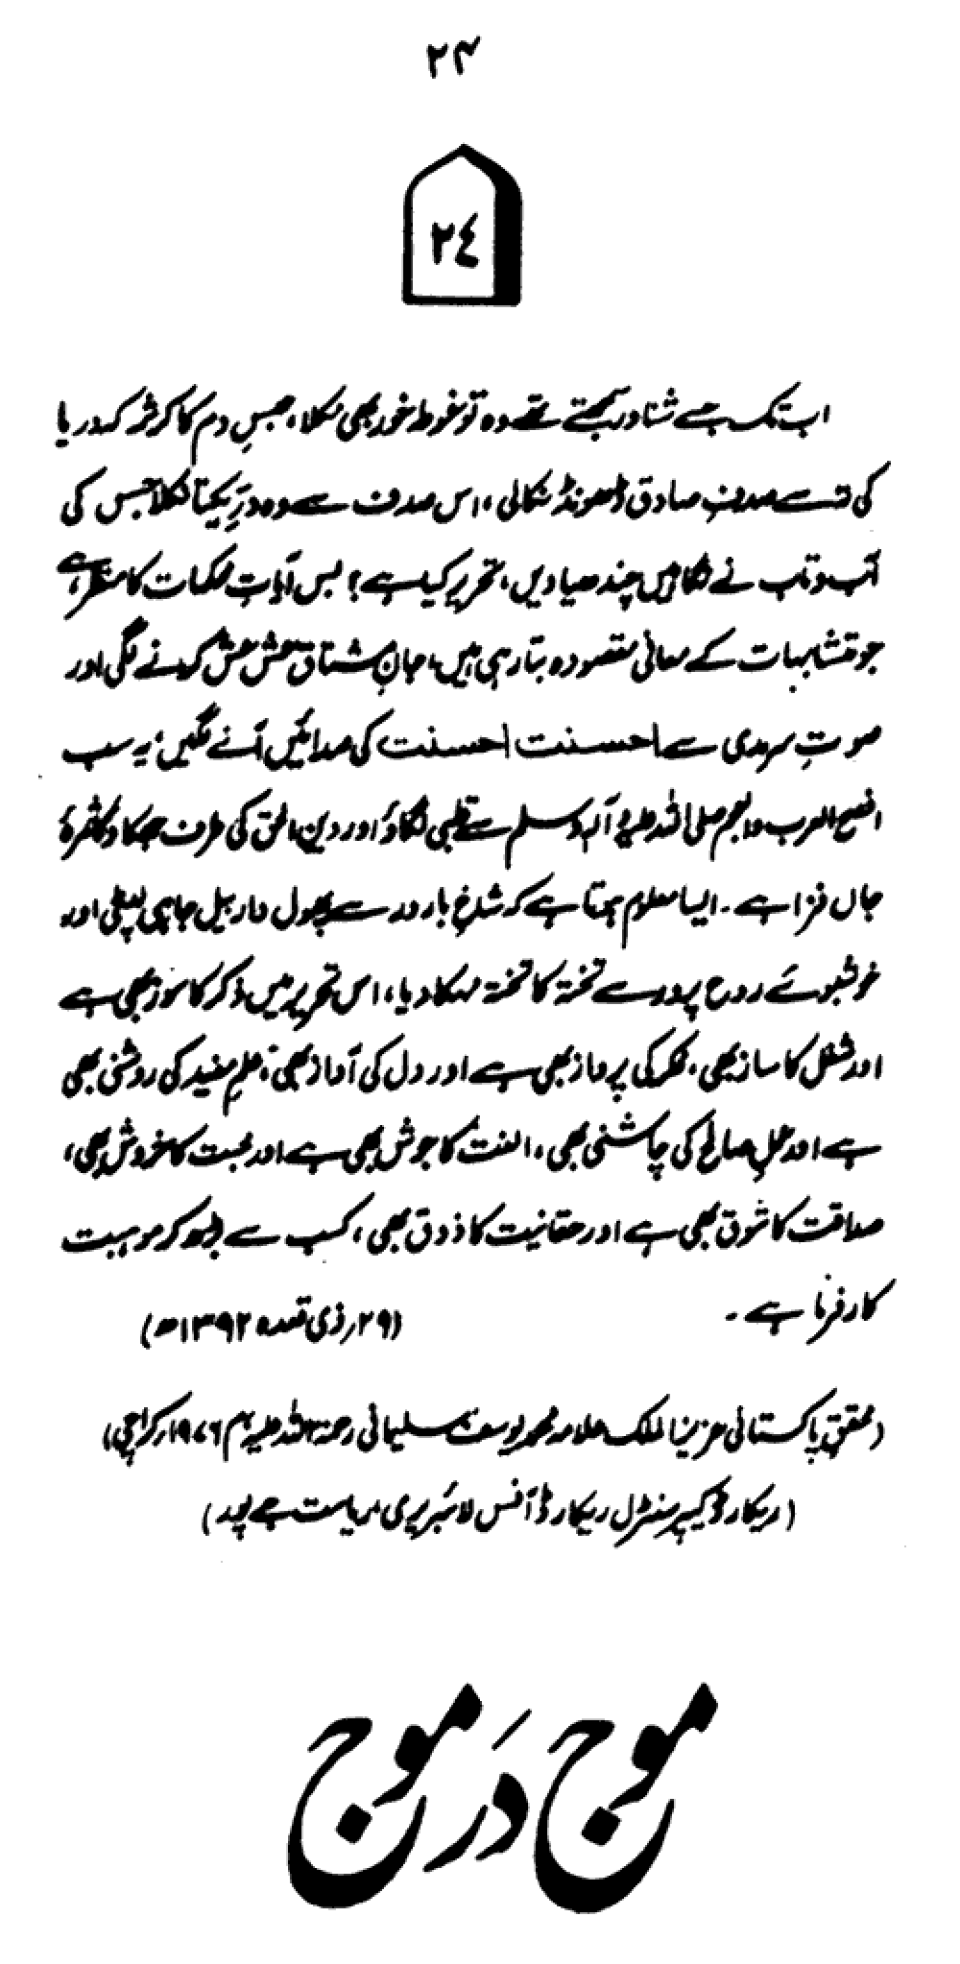 ۲۴
٢٤
اب تک جسے شناور سمجھتے تھے وہ تو غوطہ خور بھی نکلا، حبسِ دم کا کرشمہ کہ دریا
کی تہ سے صدفِ صادق ڈھونڈ نکالی، اس صدف سے وہ دُرِّ یکتا نکلا جس کی
آب و تاب نے نگاہیں چندھیا دیں، تحریر کیا ہے؟ بس آیاتِ محکمات کا منظر ہے
جو متشابہات کے معانی مقصودہ بتا رہی ہیں، جانِ مشتاق عش عش کہنے لگی اور
صوتِ سرمدی سے احسنت احسنت کی صدائیں آنے لگیں؛ یہ سب
افصح العرب والعجم صلی اللہ علیہ وآلہ وسلم سے قلبی لگاؤ اور دین الحق کی طرف جھکاؤ کا ثمرۂ
جاں فزا ہے۔ ایسا معلوم ہوتا ہے کہ شاخِ بارور سے پھول دار بیل جا ہی لپٹی اور
خوشبوئے روح پرور سے تختہ کا تختہ مہکا دیا، اس تحریر میں ذکر کا سوز بھی ہے
اور شغل کا ساز بھی، فکر کی پرواز بھی ہے اور دل کی آواز بھی، علمِ مفید کی روشنی بھی
ہے اور عملِ صالح کی چاشنی بھی، الفت کا جوش بھی ہے اور محبت کا خروش بھی،
صداقت کا شوق بھی ہے اور حقانیت کا ذوق بھی، کسب سے بڑھ کر موہبت
کارفرما ہے۔ (۲۹؍ ذی قعدہ ۱۳۹۲ھ)
(محققِ پاکستانی عزیز الملک علامہ محمد یوسف سلیمانی رحمۃ اللہ علیہ م ۱۹۷۶ء کراچی)
(ریکارڈ کیپر سنٹرل ریکارڈ آفس لائبریری ریاست جے پور)
موج دَر موج